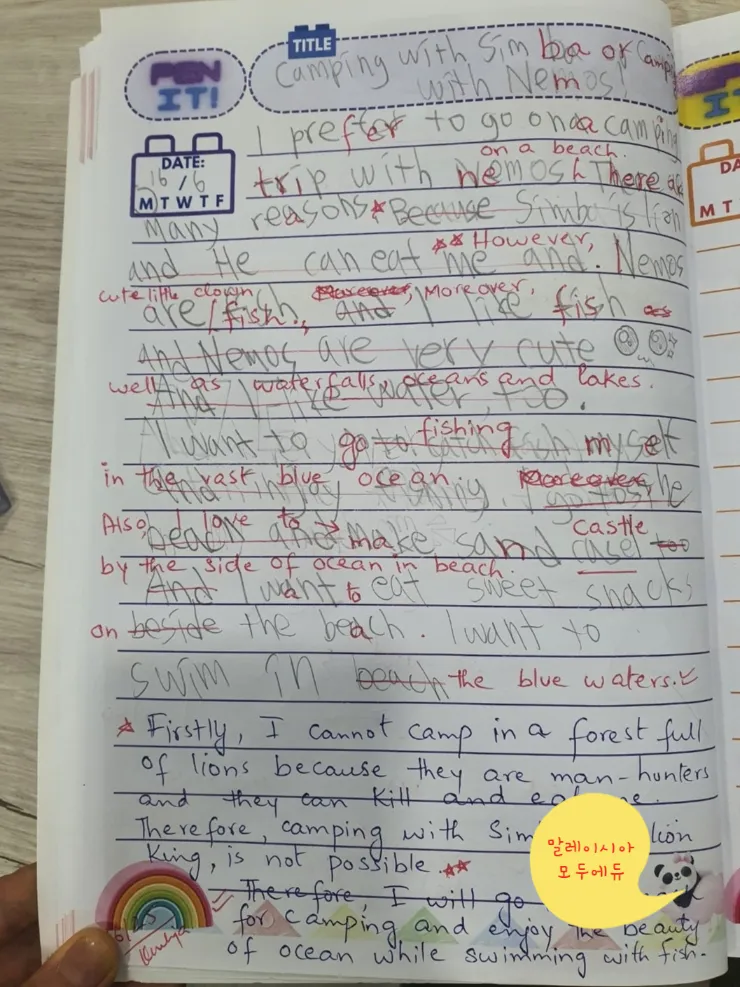 PEN IT!
TITLE
Camping with Simba or Camping
with Nemos!
DATE:
16/6
M T W T F
I prefer to go on a camping
on a beach.
trip with nemos! There are
many reasons* Because Simba is lion
and He can eat me and. Nemos
** However,
cute little clown
are fish., Moreover, and I like fish as
And Nemos are very cute
well as waterfalls, oceans and lakes.
And I like water too.
fishing
I want to go to catch fish myself
in the vast blue ocean. Moreover
and enjoy fishing. I go to the
Also I love to → castle
beach and make sand casel too
by the side of ocean in beach.
And I want to eat sweet snacks
on beside the beach. I want to
swim in beach the blue waters.
* Firstly, I cannot camp in a forest full
of lions because they are man-hunters
and they can kill and eat me.
Therefore, camping with Sim lion
King, is not possible. **
Therefore, I will go
for camping and enjoy the beauty
of ocean while swimming with fish.
말레이시아
모두에듀
DA
M T